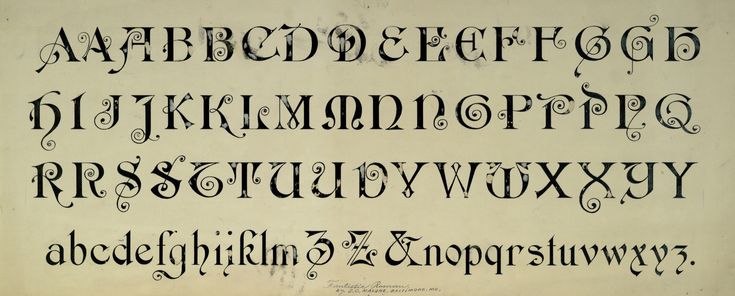 AAABBCDDEEEFFGGH
HIJJKKLMMNNOPPPQQ
RRSSTTUUVVWWXXYY
abcdefghijklmZZ&nopqrstuvwxyz.
Fantastic Roman.
BY J.C. MALONE, BALTIMORE, MD.